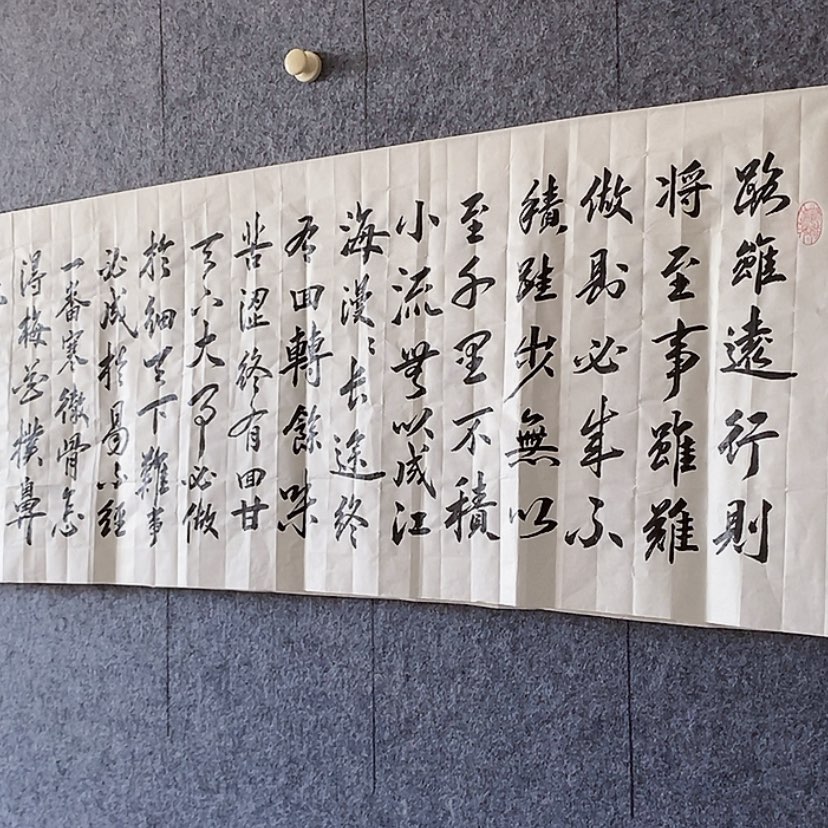 路雖遠行則
将至事雖難
做則必成不
積跬步無以
至千里不積
小流無以成江
海漫漫长途終
有回轉餘味
苦澀終有回甘
天下大事必做
於細天下難事
必成於易不經
一番寒徹骨怎
得梅花撲鼻